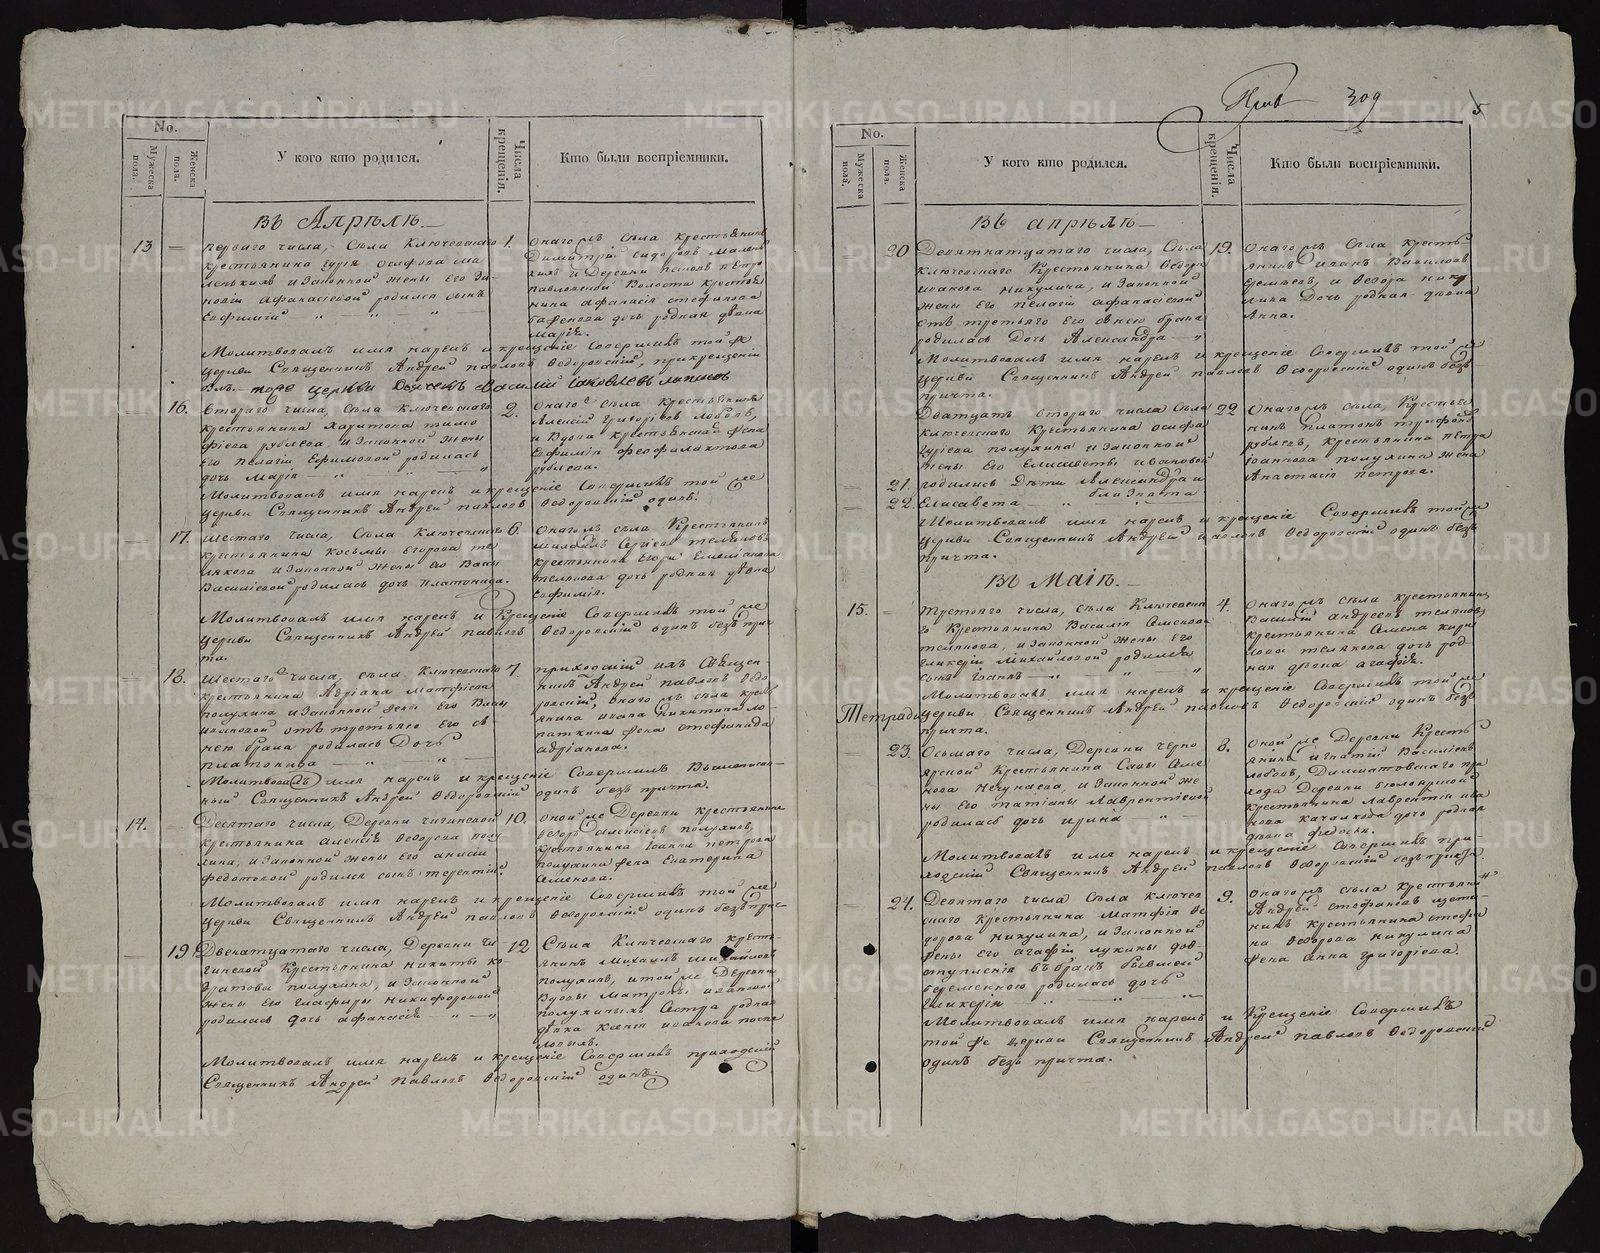 No.
Мужеска пола.
Женска пола.
У кого кто родился.
Числа крещенія.
Кто были воспріемники.
Въ Апрѣлѣ.
13 — перваго числа, Села Ключевскаго 1.
крестьянина Гурія Осифова Ма
и Законной жены его Зи
новіи Афанасіевой родился сынъ
Евфимій
Онагожъ села крестьянинъ
Димитрій Сидоровъ
и Деревни
Павловской Волости кресть
нина Афанасія Стефанова
дочь родная дѣвка
Марія.
Молитвовалъ имя нарекъ и крещеніе Совершилъ той же
церкви Священникъ Андрей Павловъ Ѳедоровскій, при крещеніи
былъ тоя церкви
— 16. Втораго числа, Села Ключевскаго 2.
крестьянина Харитона Тимо
фіева Рублева, и Законной жены
его Пелагіи Ефимовой родилась
дочь Марія
Онаго села, крестьянинъ
Алексій Григоріевъ Лобовъ,
и Вдова крестьянская жена
Евфимія Феофилактова
Рублева.
Молитвовалъ имя нарекъ и крещеніе Совершилъ той же
церкви Священникъ Андрей Павловъ Ѳедоровскій одинъ.
— 17. Шестаго числа, Села Ключевскаго 6.
крестьянина Косьмы Егорова Те
лякова и Законной жены его Васы
Василіевой родилась дочь Платонида.
Онагожъ села Крестьянинъ
Михаилъ Сергіевъ Теляковъ,
крестьянина Егора Емеліанова
Телякова дочь родная дѣвка
Евфимія.
Молитвовалъ имя нарекъ и Крещеніе Совершилъ той же
церкви Священникъ Андрей Павловъ Ѳедоровскій одинъ безъ при
та.
— 18. Шестаго числа, села Ключевскаго 7.
крестьянина Адріана Матфіева
Полухина и Законной жены его Васы
Ивановой отъ третьяго его съ
нею брака родилась Дочь
Платонида
приходскій ихъ Священ
никъ Андрей Павловъ Ѳедо
ровскій, онагожъ села крест
янина Ивана Никитина Ло
паткина жена Стефанида
Адріанова.
Молитвовалъ имя нарекъ и крещеніе Совершилъ Вышеписан
ный Священникъ Андрей Ѳедоровскій одинъ безъ причта.
14. — Десятаго числа, Деревни Чигинской 10.
крестьянина Алексія Ѳедорова Полу
хина, и Законной жены его Анисіи
Федотовой родился сынъ Терентій.
оной же Деревни крестьянинъ
Егоръ Алексіевъ Полухинъ,
крестьянина Іоанна Петрова
Полухина жена Екатерина
Семенова.
Молитвовалъ имя нарекъ и крещеніе Совершилъ той же
церкви Священникъ Андрей Павловъ Ѳедоровскій одинъ безъ при
— 19. Двенатцатаго числа, Деревни Чи 12
гинской Крестьянина Никиты Ко
дратова Полухина, и Законной
жены его Глафиры Никифоровой
родилась дочь Афанасія
Села Ключевскаго кресть
янинъ Михаилъ Михайловъ
Полухинъ, и той же Деревни
Вдовы Матроны Ивановой
Полухиныхъ Сестра родная
дѣвка Ксенія Иванова
Молитвовалъ имя нарекъ и крещеніе Совершилъ приходскій
Священникъ Андрей Павловъ Ѳедоровскій одинъ.
309
5
No.
Мужеска пола.
Женска пола.
У кого кто родился.
Числа крещенія.
Кто были воспріемники.
Въ апрѣлѣ
— 20 Девятнатцатаго числа, Села 19.
Ключевскаго Крестьянина Ѳедора
Иванова Никулина, и Законной
жены его Пелагіи Афанасіевой
отъ третьяго его съ нею брака
родилась Дочь Александра
Онагожъ Села Кресть
янинъ Иванъ Вавиловъ
Еремѣевъ, и Ѳедора Нику
лина Дочь родная дѣвка
Анна.
Молитвовалъ имя нарекъ и крещеніе Совершилъ той же
церкви Священникъ Андрей Павловъ Ѳедоровскій одинъ безъ
причта.
Дватцать втораго числа Села 22
Ключевскаго Крестьянина Осифа
Гуріева Полухина и Законной
жены его Елисаветы Ивановой
— 21. родились Дѣти Александра и
— 22. Елисавета близнята
Онагожъ села, Крестья
нинъ Платонъ Трифоновъ
Рублевъ, крестьянина Петра
Іоаннова Полухина Жена
Анастасія Петрова.
Молитвовалъ имя нарекъ и крещеніе Совершилъ той же
церкви Священникъ Андрей Павловъ Ѳедоровскій одинъ безъ
причта.
Въ Маіѣ.
15. — Третьяго числа, села Ключевска 4.
го Крестьянина Василія Семенова
Телякова, и Законной Жены его
Гликеріи Михайловой родился
сынъ Іоаннъ
Онагожъ села крестьянинъ
Василій Андреевъ Теляковъ
крестьянина Семена Кири
лова Телякова дочь род
ная дѣвка Агафія.
Молитвовалъ имя нарекъ и крещеніе Совершилъ той же
Тетради церкви Священникъ Андрей Павловъ Ѳедоровскій одинъ безъ
причта.
— 23. Осьмаго числа, Деревни Черно 8.
ярской Крестьянина Савы Семе
нова Нечунаева, и Законной же
ны его Татіаны Лаврентіевой
родилась дочь Ирина
Оной же Деревни Кресть
янинъ Игнатій Василіевъ
Лобовъ, Далматовскаго при
хода Деревни
крестьянина Лаврентія Ива
нова Качалкова дочь родная
дѣвка Федосья.
Молитвовалъ имя нарекъ и крещеніе Совершилъ при
ходскій Священникъ Андрей Павловъ Ѳедоровскій безъ причта.
— 24. Девятаго числа Села Ключев 9.
скаго крестьянина Матфія Ѳе
дорова Никулина, и Законной
жены его Агафіи Лукины до
вступленія въ бракъ бывшей
беременною родилась дочь
Гликерія
Онагожъ села крестьянинъ
Андрей Стефановъ
никъ крестьянина Стефа
на Ѳедорова Никулина
жена Анна Григоріева.
Молитвовалъ имя нарекъ и Крещеніе Совершилъ
той же церкви Священникъ Андрей Павловъ Ѳедоровскій
одинъ безъ причта.
METRIKI.GASO-URAL.RU